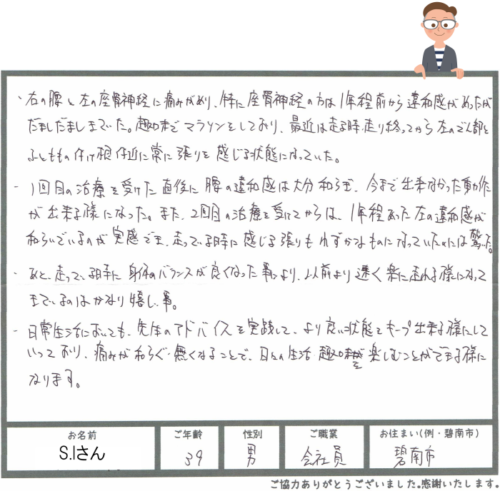 ・右の腰と左の座骨神経に痛みがあり、特に座骨神経の方は1年程前から違和感があったが
だましだましまでいた。趣味でマラソンをしており、最近は走る時、走り終ってから左のでん部と
ふとももの付け根付近に常に張りを感じる状態になっていた。
・1回目の治療を受けた直後に腰の違和感は大分和らぎ、今まで出来なかった動作
が出来る様になった。また、2回目の治療を受けてからは、1年程あった左の違和感が
和らいでいるのが実感でき、走っている時に感じる張りもわずかなものになっていたのには驚いた。
・あと、走っている時に身体のバランスが良くなった事により、以前より速く楽に走れる様になって
きているのはかなり嬉しい事。
・日常生活においても、先生のアドバイスを実践して、より良い状態をキープ出来る様にして
いっており、痛みが和らぐ・無くなることで、日々の生活 趣味を楽しむことができる様に
なります。
お名前 ご年齢 性別 ご職業 お住まい(例・碧南市)
S.Iさん 39 男 会社員 碧南市
ご協力ありがとうございました。感謝いたします。